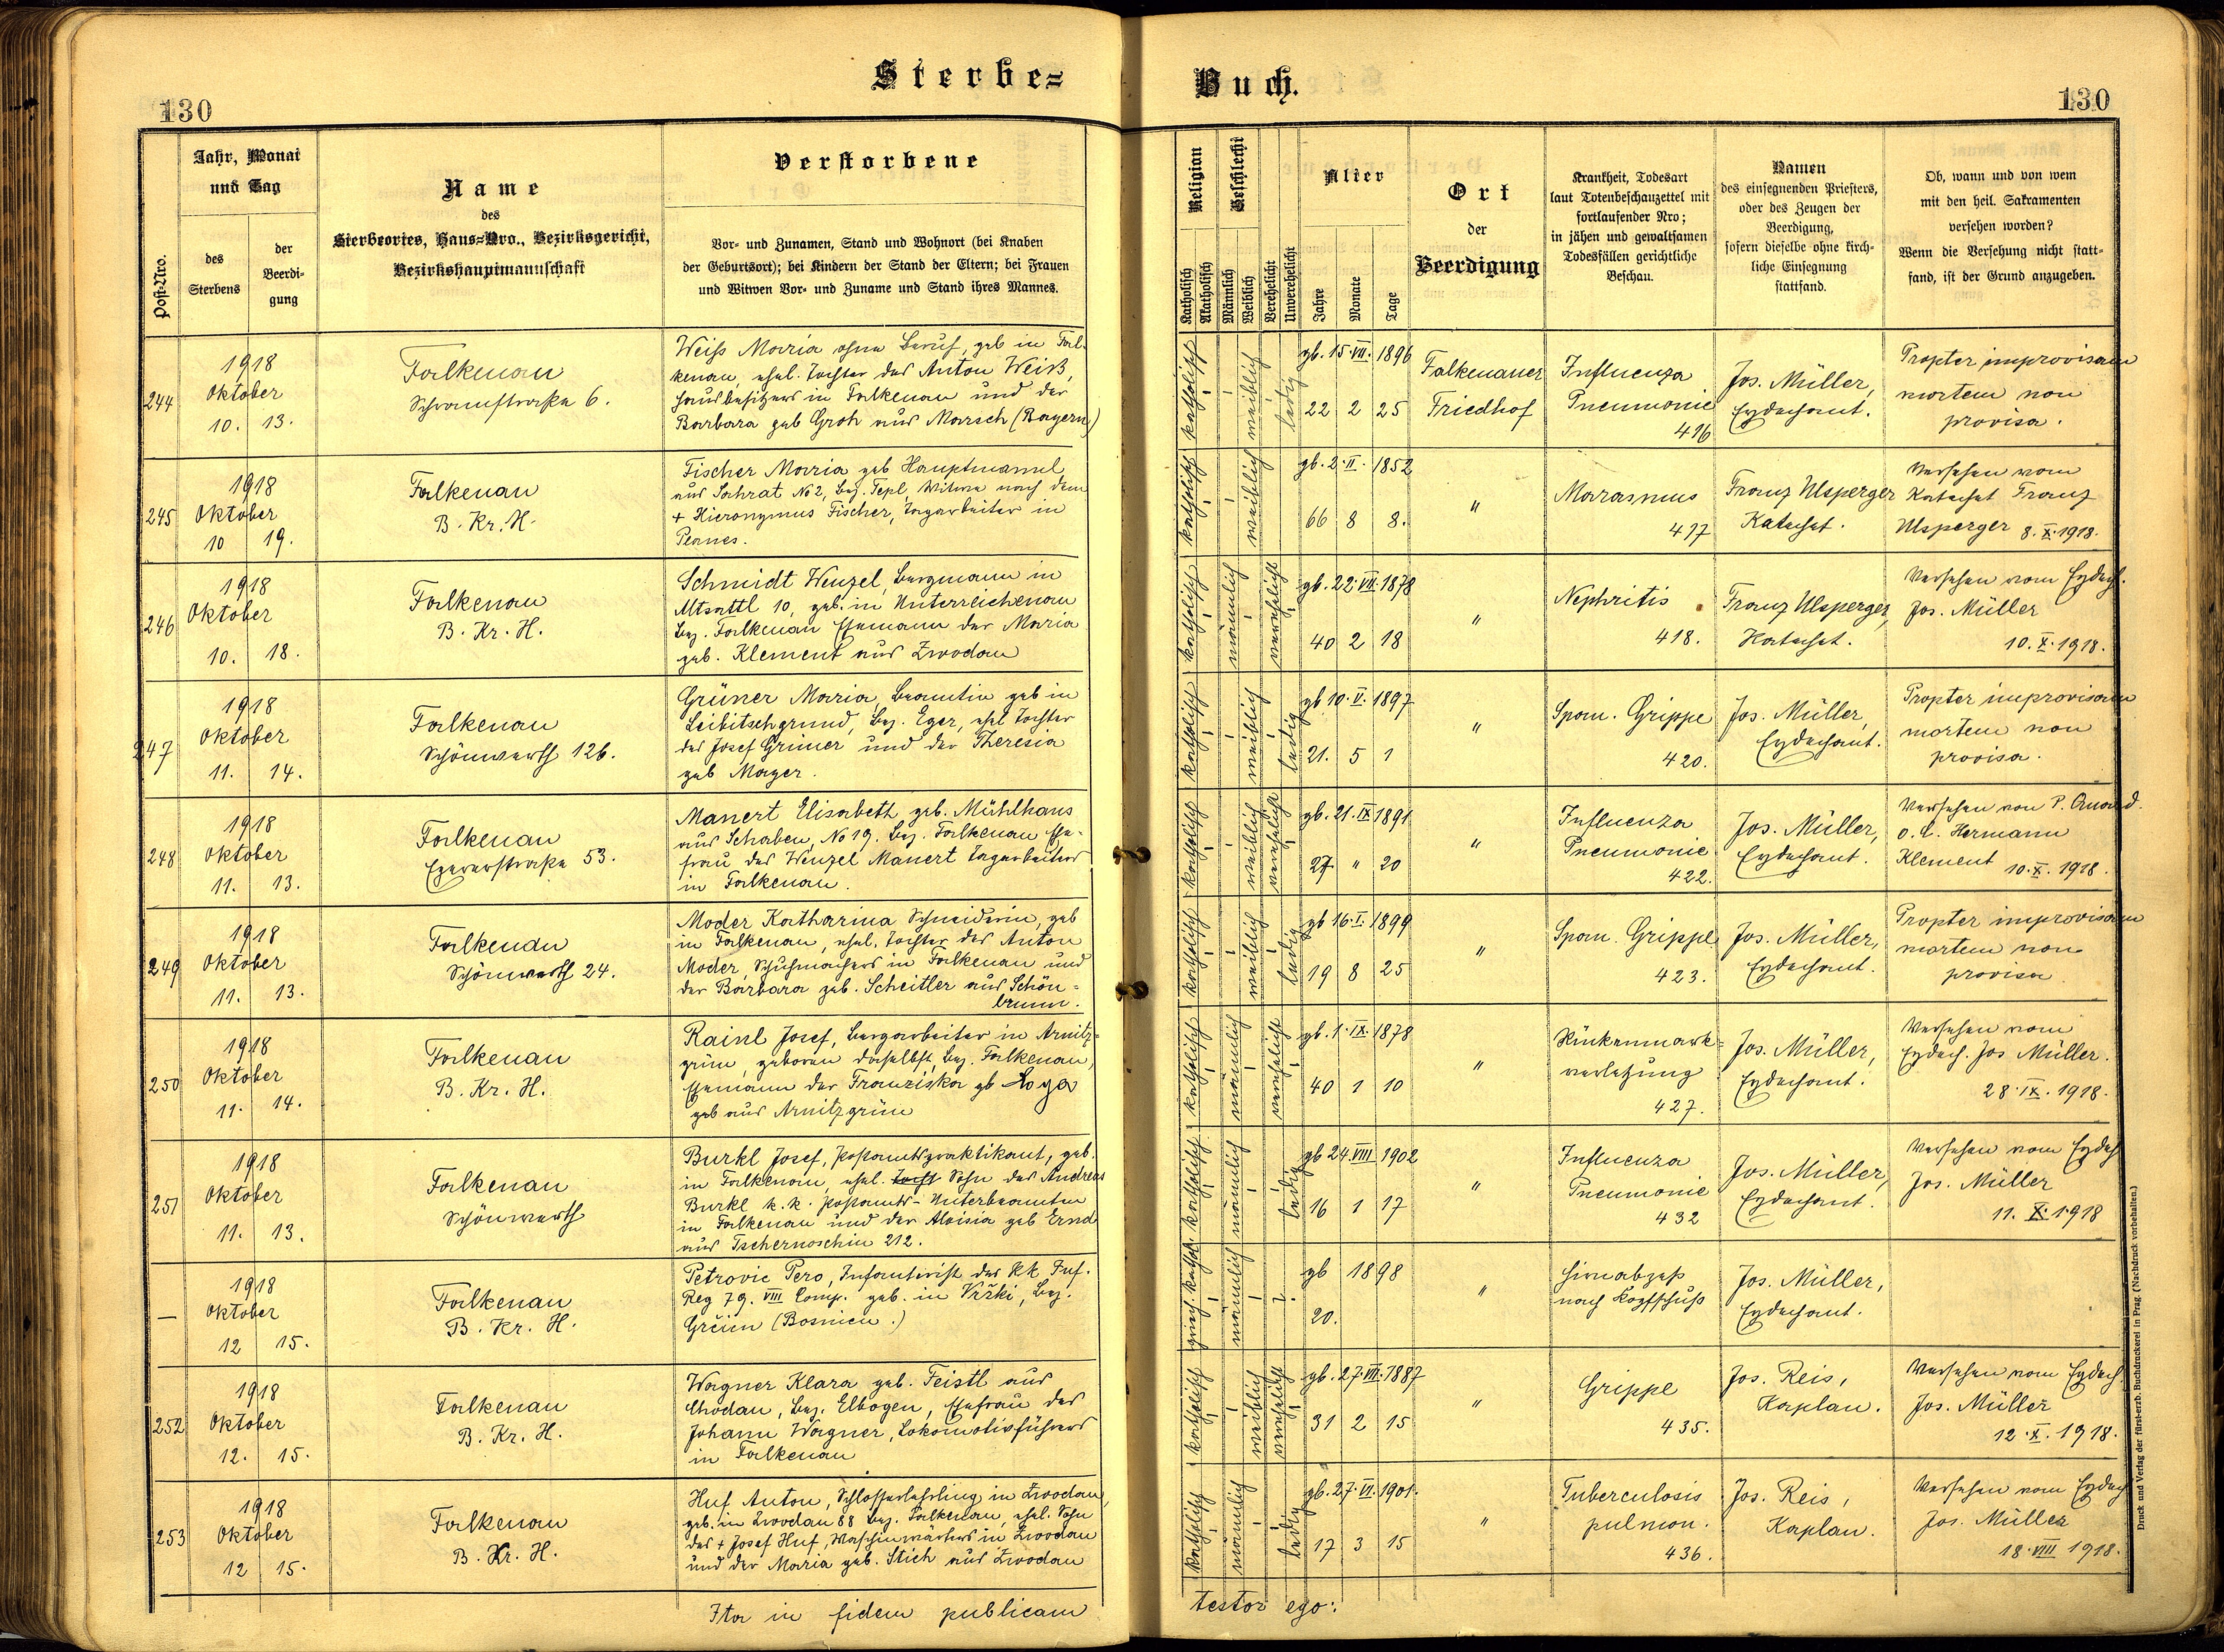 Sterbe=
Buch.
130
130
Post-Nro.
Jahr, Monat
und Tag
des
Sterbens
der
Beerdi-
gung
Name
des
Sterbeortes, Haus=Nro., Bezirksgericht,
Bezirkshauptmannschaft
Verstorbene
Vor- und Zunamen, Stand und Wohnort (bei Knaben
der Geburtsort); bei Kindern der Stand der Eltern; bei Frauen
und Witwen Vor- und Zuname und Stand ihres Mannes.
Religion
Katholisch
Akatholisch
Geschlecht
Männlich
Weiblich
Verehelicht
Unverehelicht
Alter
Jahre
Monate
Tage
Ort
der
Beerdigung
Krankheit, Todesart
laut Totenbeschauzettel mit
fortlaufender Nro;
in jähen und gewaltsamen
Todesfällen gerichtliche
Beschau.
Namen
des einsegnenden Priesters,
oder des Zeugen der
Beerdigung,
sofern dieselbe ohne kirch-
liche Einsegnung
stattfand.
Ob, wann und von wem
mit den heil. Sakramenten
versehen worden?
Wenn die Versehung nicht statt-
fand, ist der Grund anzugeben.
244
1918
Oktober
10. 13.
Falkenau
Schramstraße 6.
Weiss Maria ohne Beruf, geb in Fal-
kenau, ehel. Tochter des Anton Weiß,
Hausbesitzers in Falkenau und der
Barbara geb Groh aus Marsch (Bayern)
katholisch
weiblich
ledig
gb. 15. VII. 1896
22 2 25
Falkenauer
Friedhof
Influenza
Pneumonie
416
Jos. Müller,
Erzdechant.
Propter improvisam
mortem non
provisa.
245
1918
Oktober
10 19.
Falkenau
B. Kr. H.
Fischer Maria geb Hauptmannl
aus Sahrat No 2, Bez. Tepl, Witwe nach dem
+ Hieronymus Fischer, Tagarbeiter in
Planes.
katholisch
weiblich
gb. 2. II. 1852
66 8 8.
"
Marasmus
417
Franz Ulsperger
Katechet.
Versehen vom
Katechet Franz
Ulsperger 8. X. 1918.
246
1918
Oktober
10. 18.
Falkenau
B. Kr. H.
Schmidt Wenzel, Bergmann in
Altsattl 10, geb. in Unterreichenau
Bez. Falkenau Ehemann der Maria
geb. Klement aus Zwodau
katholisch
männlich
verehelicht
gb. 22. VII. 1878
40 2 18
"
Nephritis
418.
Franz Ulsperger,
Katechet.
Versehen vom Erzdech.
Jos. Müller
10. X. 1918.
247
1918
Oktober
11. 14.
Falkenau
Schönwerth 126.
Grüner Maria, Beamtin geb in
Leibitschgrund, Bez. Eger, ehel Tochter
des Josef Grüner und der Theresia
geb Mayer.
katholisch
weiblich
ledig
gb 10. V. 1897
21. 5 1
"
Span. Grippe
420.
Jos. Müller,
Erzdechant.
Propter improvisam
mortem non
provisa.
248
1918
Oktober
11. 13.
Falkenau
Egererstraße 53.
Manert Elisabeth, geb. Mühlhans
aus Schaben, No 19. Bez. Falkenau Ehe-
frau des Wenzel Manert Tagarbeiters
in Falkenau.
katholisch
weiblich
verehelicht
gb. 21. IX 1891
27 " 20
"
Influenza
Pneumonie
422.
Jos. Müller,
Erzdechant.
Versehen von P.
Hermann
Klement 10. X. 1918.
249
1918
Oktober
11. 13.
Falkenau
Schönwerth 24.
Moder Katharina Schneiderin, geb
in Falkenau, ehel. Tochter des Anton
Moder, Schuhmachers in Falkenau und
der Barbara geb. Scheitler aus Schön=
brunn.
katholisch
weiblich
ledig
gb 16. I. 1899
19 8 25
"
Span. Grippe
423.
Jos. Müller,
Erzdechant.
Propter improvisam
mortem non
provisa
250
1918
Oktober
11. 14.
Falkenau
B. Kr. H.
Rainl Josef, Bergarbeiter in Arnitz=
grün, geboren daselbst, Bez. Falkenau,
Ehemann der Franziska gb Loga
geb aus Arnitzgrün
katholisch
männlich
verehelicht
gb. 1. IX. 1878
40 1 10
"
Rückenmark=
verletzung
427.
Jos. Müller,
Erzdechant.
Versehen vom
Erzdech. Jos Müller.
28. IX. 1918.
251
1918
Oktober
11. 13.
Falkenau
Schönwerth
Burkl Josef, Postamtspraktikant, geb.
in Falkenau, ehel. Tocht Sohn des Andreas
Burkl k.k. Postamts-Unterbeamten
in Falkenau und der Aloisia geb Ernd
aus Tschernoschin 212.
katholisch
männlich
ledig
gb 24 VIII 1902
16 1 17
"
Influenza
Pneumonie
432
Jos. Müller,
Erzdechant.
Versehen vom Erzdech
Jos. Müller
11. X. 1918
—
1918
Oktober
12 15.
Falkenau
B. Kr. H.
Petrovic Pero, Infanterist des kk Inf.
Reg 79. VIII Comp. geb. in Vrški, Bez.
(Bosnien.)
griech. kathol.
männlich
?
gb 1898
20.
"
Hirnabzeß
nach Kopfschuß
Jos. Müller,
Erzdechant.
252
1918
Oktober
12. 15.
Falkenau
B. Kr. H.
Wagner Klara geb. Feistl aus
Chodau, Bez. Elbogen, Ehefrau des
Johann Wagner, Lokomotivführers
in Falkenau
katholisch
weiblich
verehelicht
gb. 27. VII. 1887
31 2 15
"
Grippe
435.
Jos. Reis,
Kaplan.
Versehen vom Erzdech
Jos. Müller
12. X. 1918.
253
1918
Oktober
12 15.
Falkenau
B. Kr. H.
Huf Anton, Schlosserlehrling in Zwodau,
geb. in Zwodau 88 Bez. Falkenau, ehel. Sohn
des + Josef Huf, Maschinwärters in Zwodau
und der Maria geb. Stich aus Zwodau
katholisch
männlich
ledig
gb. 27. VI. 1901.
17 3 15
"
Tuberculosis
pulmon.
436.
Jos. Reis,
Kaplan.
Versehen vom Erzdech
Jos. Müller
18. VIII 1918.
Ita in fidem publicam
testor ego:
Druck und Verlag der fürst-erzb. Buchdruckerei in Prag. (Nachdruck vorbehalten.)